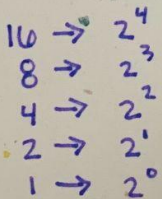 16 → 2⁴
8 → 2³
4 → 2²
2 → 2¹
1 → 2⁰